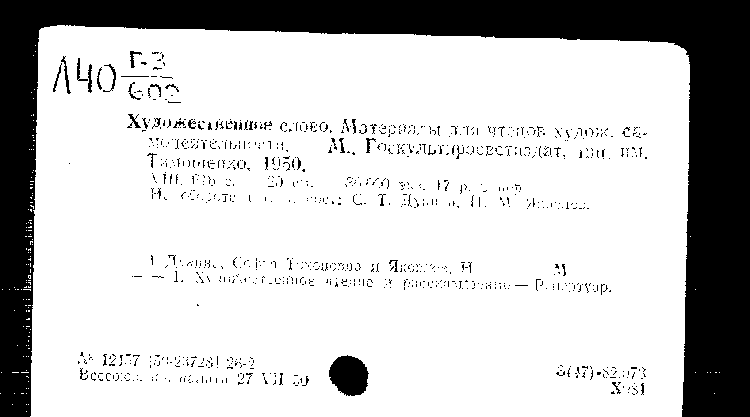 Л40 Г-3
602
Художественное слово. Материалы для чтецов худож. са-
модеятельности. М., Госкультпросветиздат, тип. им.
Тимошенко, 1950.
VIII, с. 20 см. экз. 17 р. в пер.
На обороте тит. л. сост.: С. Т. Дунина, Н. М. Яковлев.
1. Дунина, София Тихоновна и Яковлев, Н М
— — 1. Художественное чтение и рассказывание — Репертуар.
№ 12157 [50-23728] 26-2
Всесоюз. кн. палата 27 VII 50
8(47)-82.073
Х981